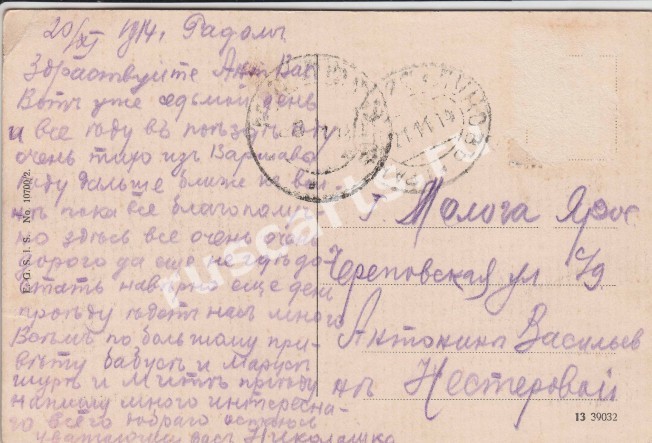 20/XI 1914. Радомъ
Здраствуйте Ант Вас
Вотъ уже седьмой день
и все еду въ поездъ еду
очень тихо изъ Варшаво
еду дальше ближе ка вай
нъ пока все благополуч
но здесь все очень очень
дорого да еще негде до
стать наверно еще день
проеду едетъ насъ много
Всемъ по большому при
вету бабусъ и Марусъ
шуръ и Митъ приеду
напишу много интересна
го всего добраго остаюсь
уважающий васъ Николашка
F. G. S. I. S. No. 10700/2.
21.11.14
г. Молога Яросл
Череповская ул 79
Антонинъ Васильев
нъ Нестеровой
13 39032
ruscarts.ru